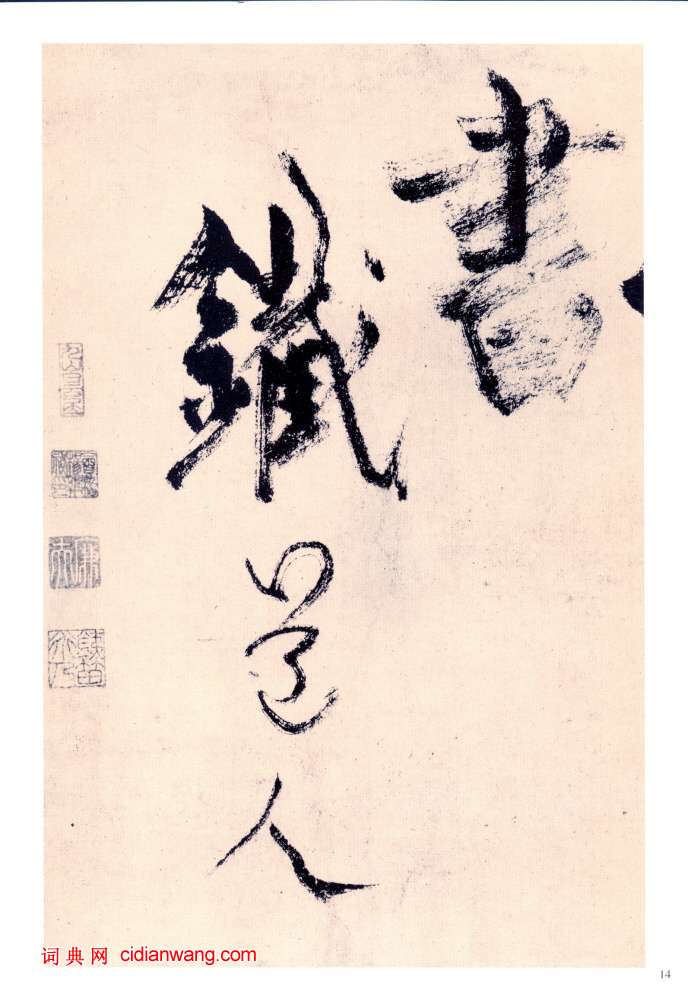 書
鐵道人
廉夫
词典网 cidianwang.com
14